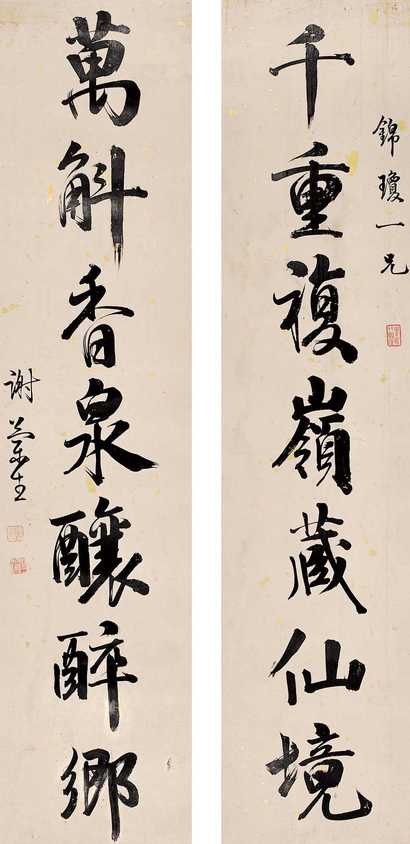 錦瓊一兄
千重複嶺藏仙境
萬斛香泉釀醉鄉
謝蘭生